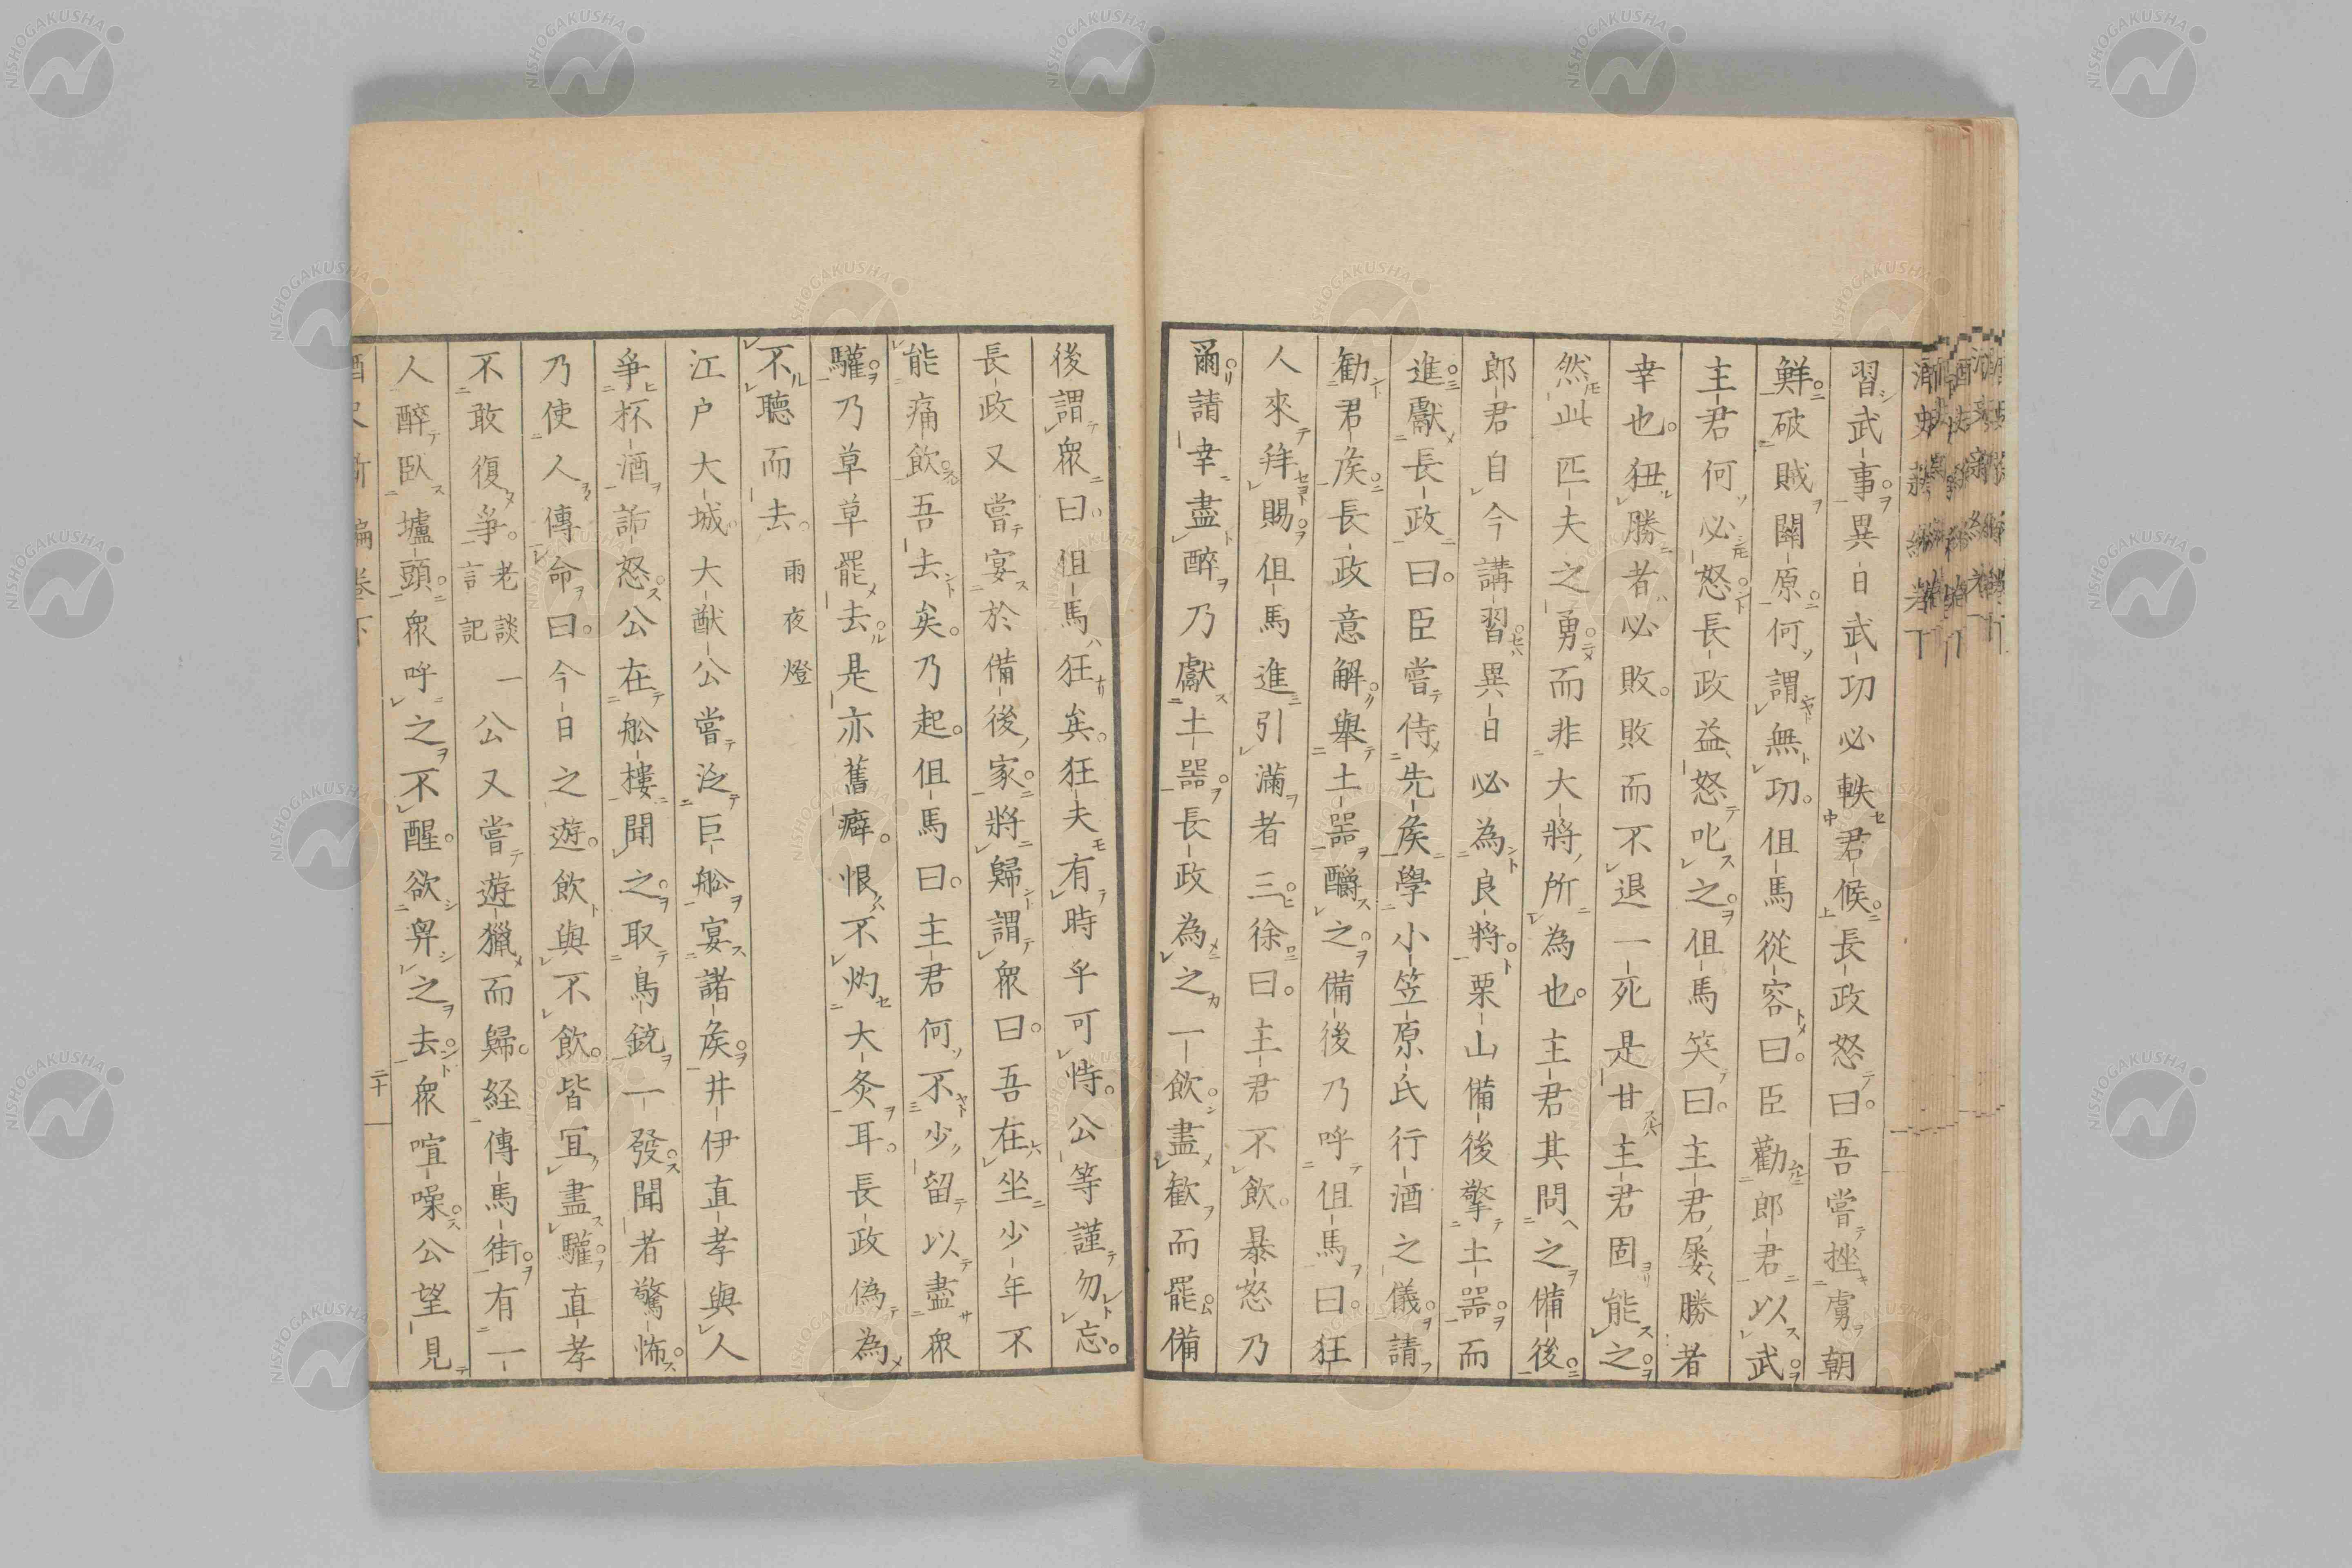 習武事異日武功必軼君候長政怒曰吾嘗挫虜朝
鮮破賊關原何謂無功但馬從容曰臣勸郎君以武
主君何必怒長政益怒叱之但馬笑曰主君屡勝者
幸也狃勝者必敗敗而不退一死是甘主君固能之
然此匹夫之勇而非大將所為也主君其問之備後
郎君自今講習異日必為良將栗山備後擎土器而
進獻長政曰臣嘗侍先矦學小笠原氏行酒之儀請
勸君矦長政意解舉土器釂之備後乃呼但馬曰狂
人來拜賜但馬進引滿者三徐曰主君不飲暴怒乃
爾請幸盡醉乃獻土器長政為之一飲盡歓而罷備
後謂衆曰但馬狂矣狂夫有時乎可恃公等謹勿忘
長政又嘗宴於備後家將歸謂衆曰吾在坐少年不
能痛飲吾去矣乃起但馬曰主君何不少留以盡衆
驩乃草草罷去是亦舊癖恨不灼大灸耳長政偽為
不聽而去 雨夜燈
江户大城大猷公嘗泛巨舩宴諸矦井伊直孝與人
爭杯酒詬怒公在舩樓聞之取鳥銃一發聞者驚怖
乃使人傳命曰今日之遊飲與不飲皆宜盡驩直孝
不敢復爭 老談一言記 公又嘗遊獵而歸経傳馬街有一
人醉臥壚頭衆呼之不醒欲舁之去衆喧噪公望見
二十
NISHOGAKUSHA